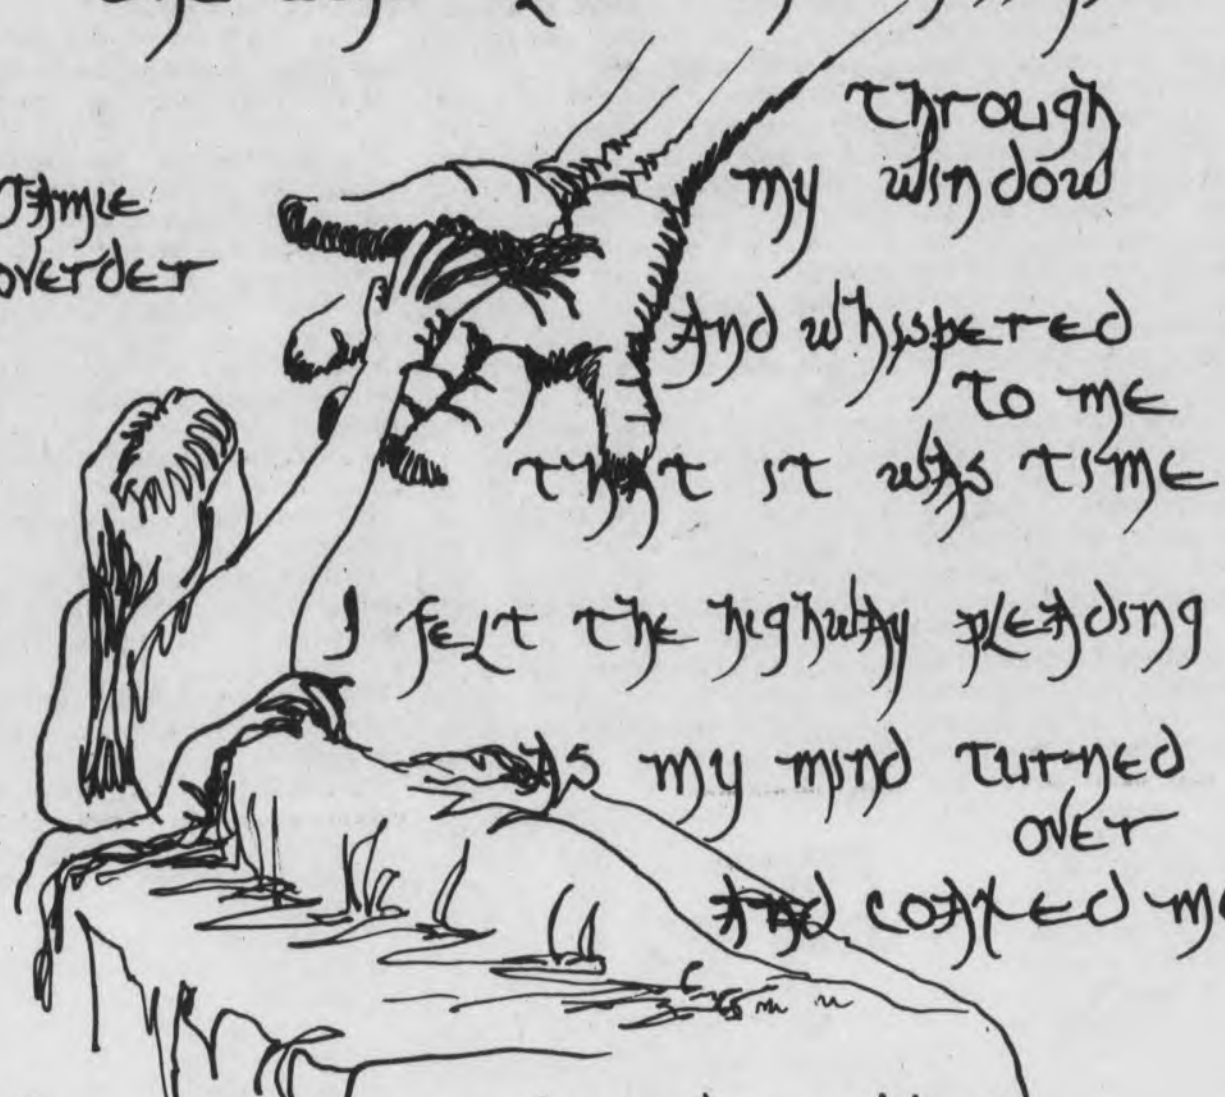 through
my window
Jamie
overder
And whispered
to me
that it was time
I felt the highway pleading
As my mind turned
over
And coaxed me